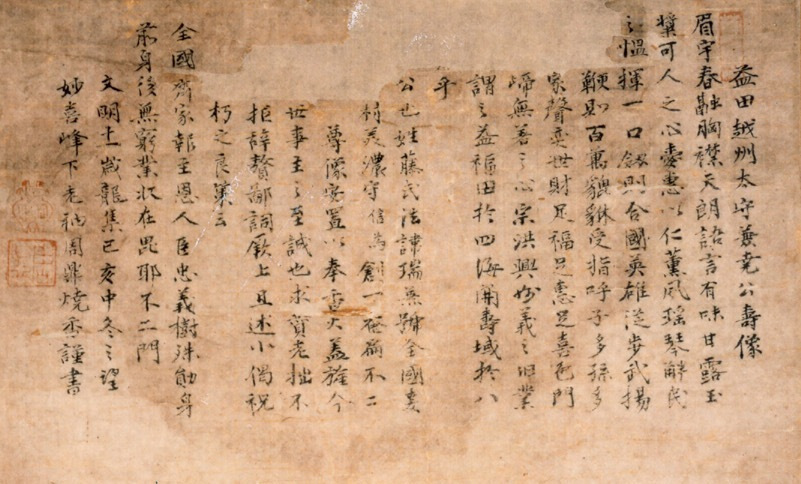 益田越州太守兼堯公壽像
眉宇春融胸襟天朗語言有味甘露玉
漿可人之心以仁薫風瑶琴解民
之慍揮一口劔則合國英雄從歩武揚
鞭則百萬貔貅受指呼子多孫多
家聲奕世財足福足恵足喜色門
啼無著之心宗洪興妙義之旧業
謂之益福田於四海開壽域於八
乎
公也姓藤氏法諱瑞兼號全國
村美濃守信為創一庵扁不二
尊像安置以奉香火蓋旌今
世事主之至誠也求賛老拙不
拒辞贅鄙詞厥上且述小偈祝
朽之良算云
全國齊家報主恩人臣忠義樹殊勛身
前身後無窮業状在毘耶不二門
文明十一歳龍集己亥中冬之望
妙喜峰下老衲周鼎燒香謹書